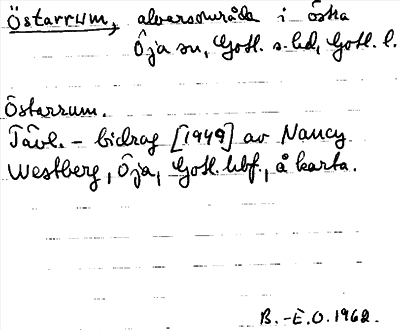 Östarrum, alversområde i östra
Öja sn, Gotl. s. hd, Gotl. l.
Östarrum.
Tävl. - bidrag [1949] av Nancy
Westberg, Öja, Gotl. hbf., å karta.
B.-E.O. 1962.